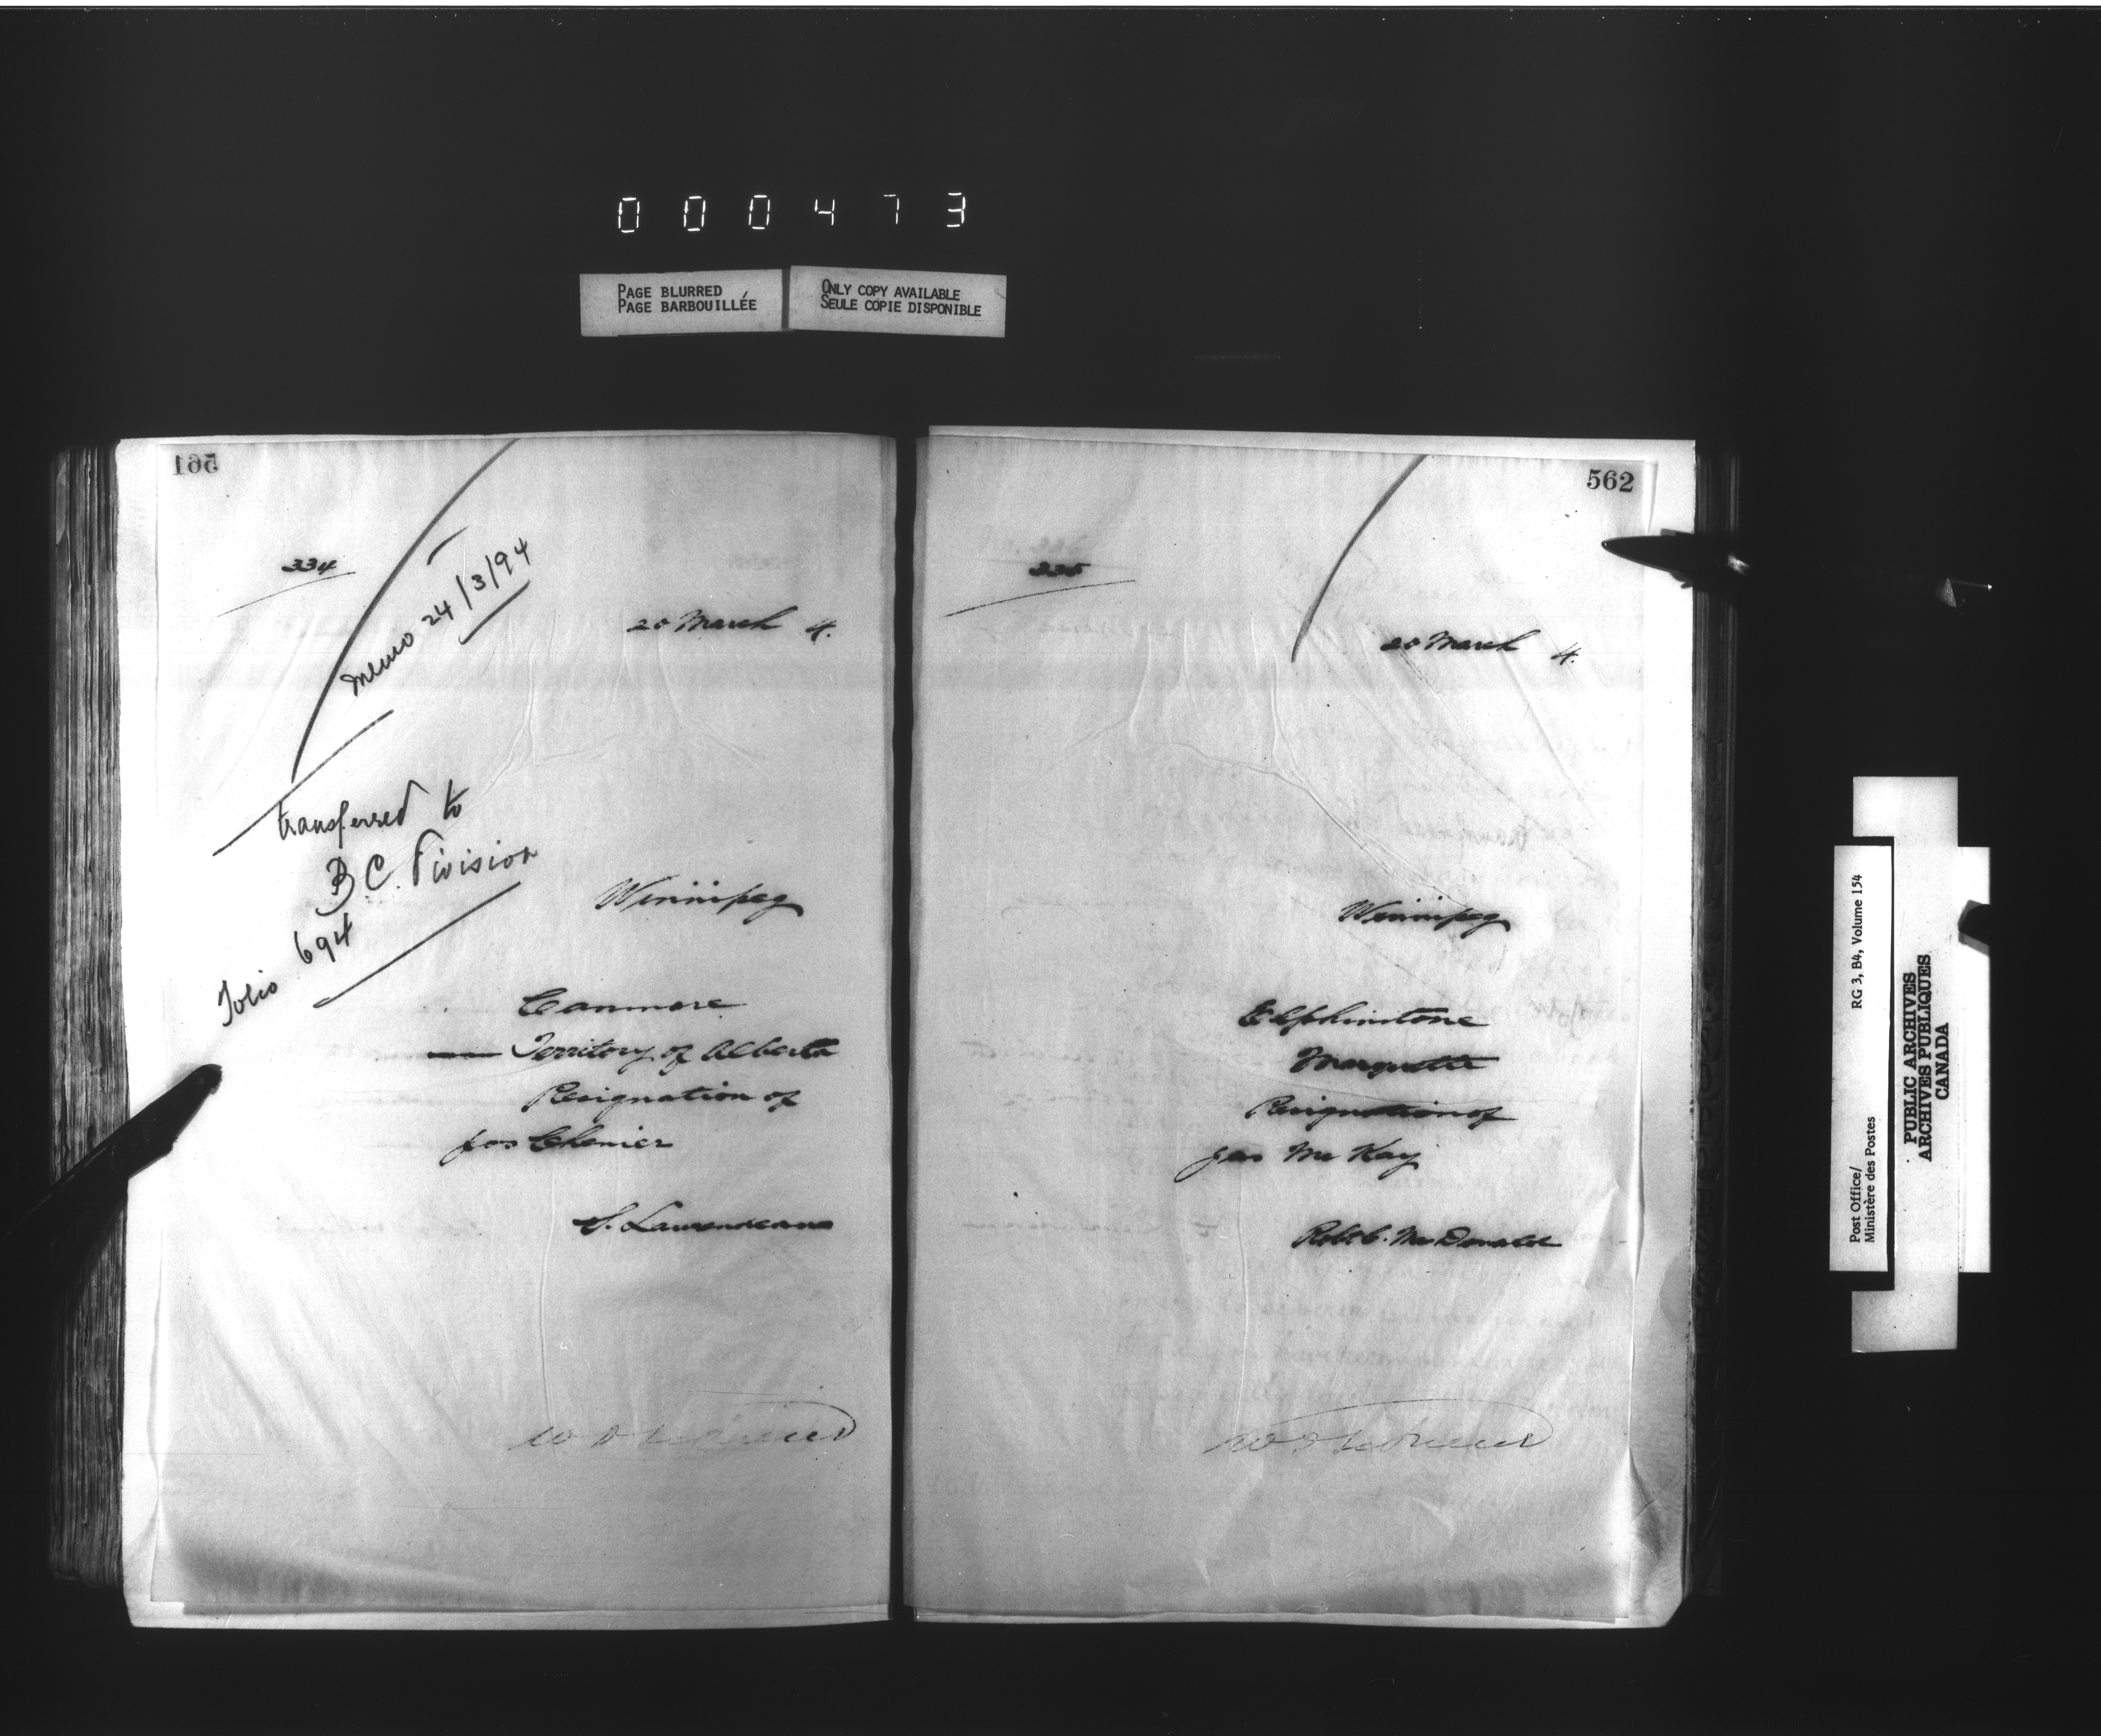 000473
PAGE BLURRED
PAGE BARBOUILLÉE
ONLY COPY AVAILABLE
SEULE COPIE DISPONIBLE
561
334
memo 24/3/94
20 March 4.
transferred to
B.C. Division
folio 694
Winnipeg
Canmore
Territory of Alberta
Resignation of
Jas Chenier
S. Laurendeau
562
335
20 March 4.
Winnipeg
Elphinstone
Marquette
Resignation of
Jas McKay
Robt C. McDonald
Post Office/
Ministère des Postes
RG 3, B4, Volume 154
PUBLIC ARCHIVES
ARCHIVES PUBLIQUES
CANADA